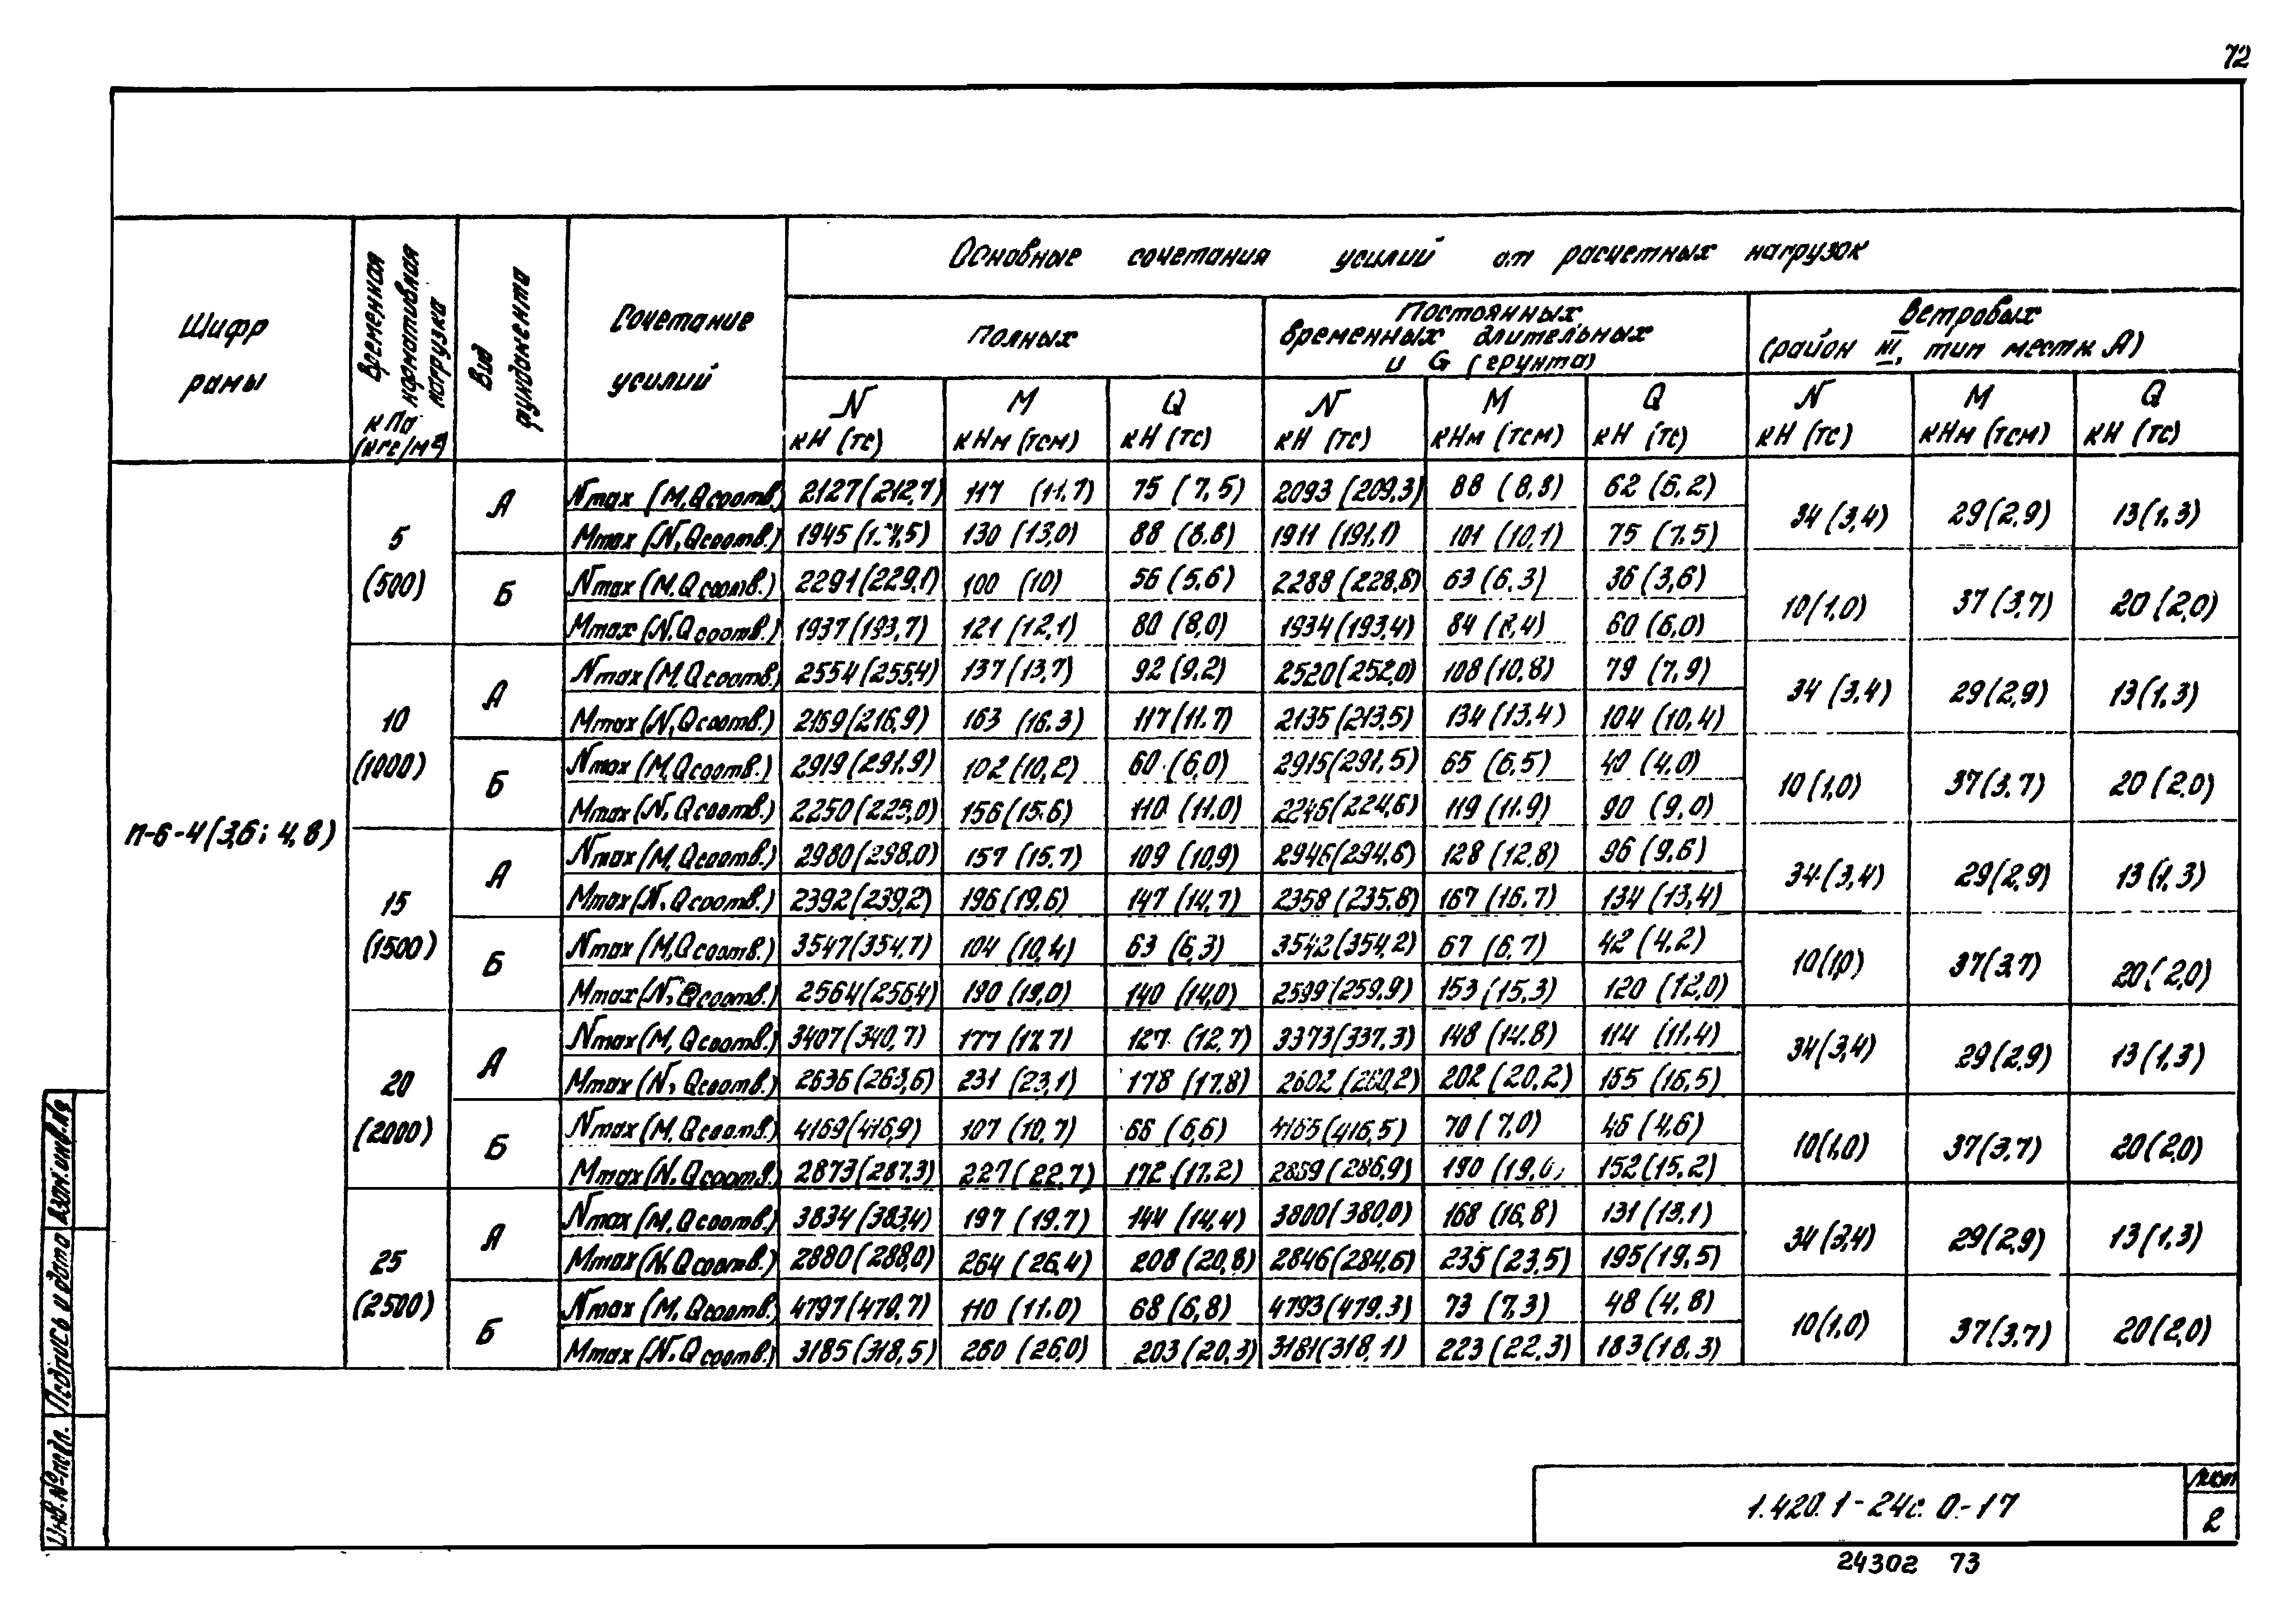 72
Основные сочетания усилий от расчетных нагрузок
Шифр рамы
Временная нормативная нагрузка кПа (кгс/м²)
Вид фундамента
Сочетание усилий
Полных
Постоянных временных длительных и G (грунта)
Ветровых (район III, тип местн А)
N кН (тс) M кНм (тсм) Q кН (тс) N кН (тс) M кНм (тсм) Q кН (тс) N кН (тс) M кНм (тсм) Q кН (тс)
п-6-4(3,6; 4,8)
5 (500)
А Nmax (M,Qсоотв.) 2127(212,7) 117 (11,7) 75 (7,5) 2093 (209,3) 88 (8,8) 62 (6,2) 34 (3,4) 29(2,9) 13(1,3)
Mmax (N,Qсоотв.) 1945 130 (13,0) 88 (8.8) 1911 (191,1) 101 (10,1) 75 (7,5)
Б Nmax (M,Qсоотв.) 2291(229,1) 100 (10) 56 (5,6) 2288 (228,8) 63 (6,3) 36 (3,6) 10(1,0) 37 (3,7) 20 (2,0)
Mmax (N,Qсоотв.) 1937(193,7) 121 (12,1) 80 (8,0) 1934(193,4) 84 (8,4) 60 (6,0)
10 (1000)
А Nmax (M,Qсоотв.) 2554(255,4) 137(13,7) 92 (9,2) 2520(252,0) 108(10,8) 79 (7,9) 34 (3,4) 29(2,9) 13(1,3)
Mmax (N,Qсоотв.) 2169(216,9) 163 (16.3) 117(11.7) 2135(213,5) 134(13,4) 104 (10,4)
Б Nmax (M,Qсоотв.) 2919(291,9) 102(10,2) 60 (6,0) 2915(291,5) 65 (6,5) 40 (4,0) 10(1,0) 37(3,7) 20 (2,0)
Mmax (N,Qсоотв.) 2250(225,0) 156(15,6) 110 (11,0) 2246(224,6) 119 (11.9) 90 (9,0)
15 (1500)
А Nmax (M,Qсоотв.) 2980(298,0) 157 (15,7) 109 (10,9) 2946(294,6) 128 (12,8) 96 (9,6) 34(3,4) 29(2,9) 13(1,3)
Mmax (N,Qсоотв.) 2392(239,2) 196(19,6) 147 (14,7) 2358 (235,8) 167 (16,7) 134 (13,4)
Б Nmax (M,Qсоотв.) 3547(354,7) 104 (10,4) 63 (6,3) 3542(354,2) 67 (6,7) 42 (4,2) 10(1,0) 37(3,7) 20(2,0)
Mmax (N,Qсоотв.) 2564(2564) 190 (19,0) 140 (14,0) 2599(259,9) 153 (15,3) 120 (12,0)
20 (2000)
А Nmax (M,Qсоотв.) 3407(340,7) 177 (17,7) 127 (12,7) 3373(337,3) 148 (14.8) 114 (11,4) 34(3,4) 29(2,9) 13(1,3)
Mmax (N,Qсоотв.) 2636(263,6) 231 (23,1) 178 (17,8) 2602 (260,2) 202 (20,2) 165 (16,5)
Б Nmax (M,Qсоотв.) 4169(416,9) 107 (10,7) 66 (6,6) 4165(416,5) 70 (7,0) 46 (4,6) 10(1,0) 37(3,7) 20(2,0)
Mmax (N,Qсоотв.) 2873(287,3) 227(22,7) 172 (17,2) 2869 (286,9) 190 (19,0) 152(15,2)
25 (2500)
А Nmax (M,Qсоотв.) 3834(383,4) 197 (19.7) 144 (14,4) 3800(380,0) 168 (16,8) 131(13,1) 34(3,4) 29(2,9) 13(1,3)
Mmax (N,Qсоотв.) 2880(288,0) 264 (26,4) 208(20,8) 2846(284,6) 235(23,5) 195(19,5)
Б Nmax (M,Qсоотв.) 4797(479,7) 110 (11.0) 68(6,8) 4793(479,3) 73 (7,3) 48 (4,8) 10(1,0) 37(3,7) 20(2,0)
Mmax (N,Qсоотв.) 3185(318,5) 260 (26,0) 203 (20,3) 3181(318,1) 223 (22,3) 183(18,3)
Инв. № подл. Подпись и дата Взам. инв. №
1.420.1-24с. 0-17
Лист
2
24302 73